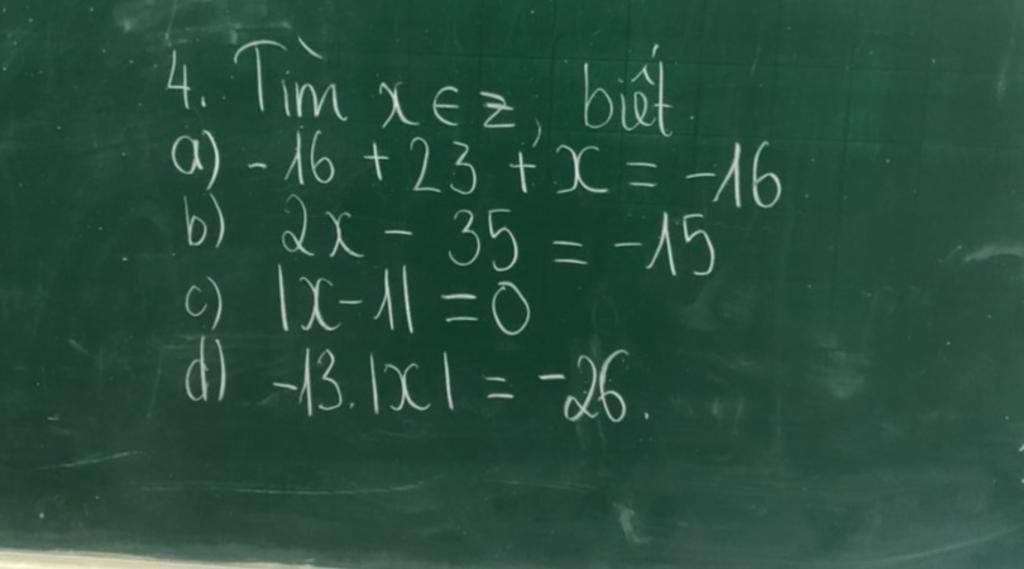 4. Tìm x ∈ Z, biết
a) -16 + 23 + x = -16
b) 2x - 35 = -15
c) |x-1| = 0
d) -13.|x| = -26.